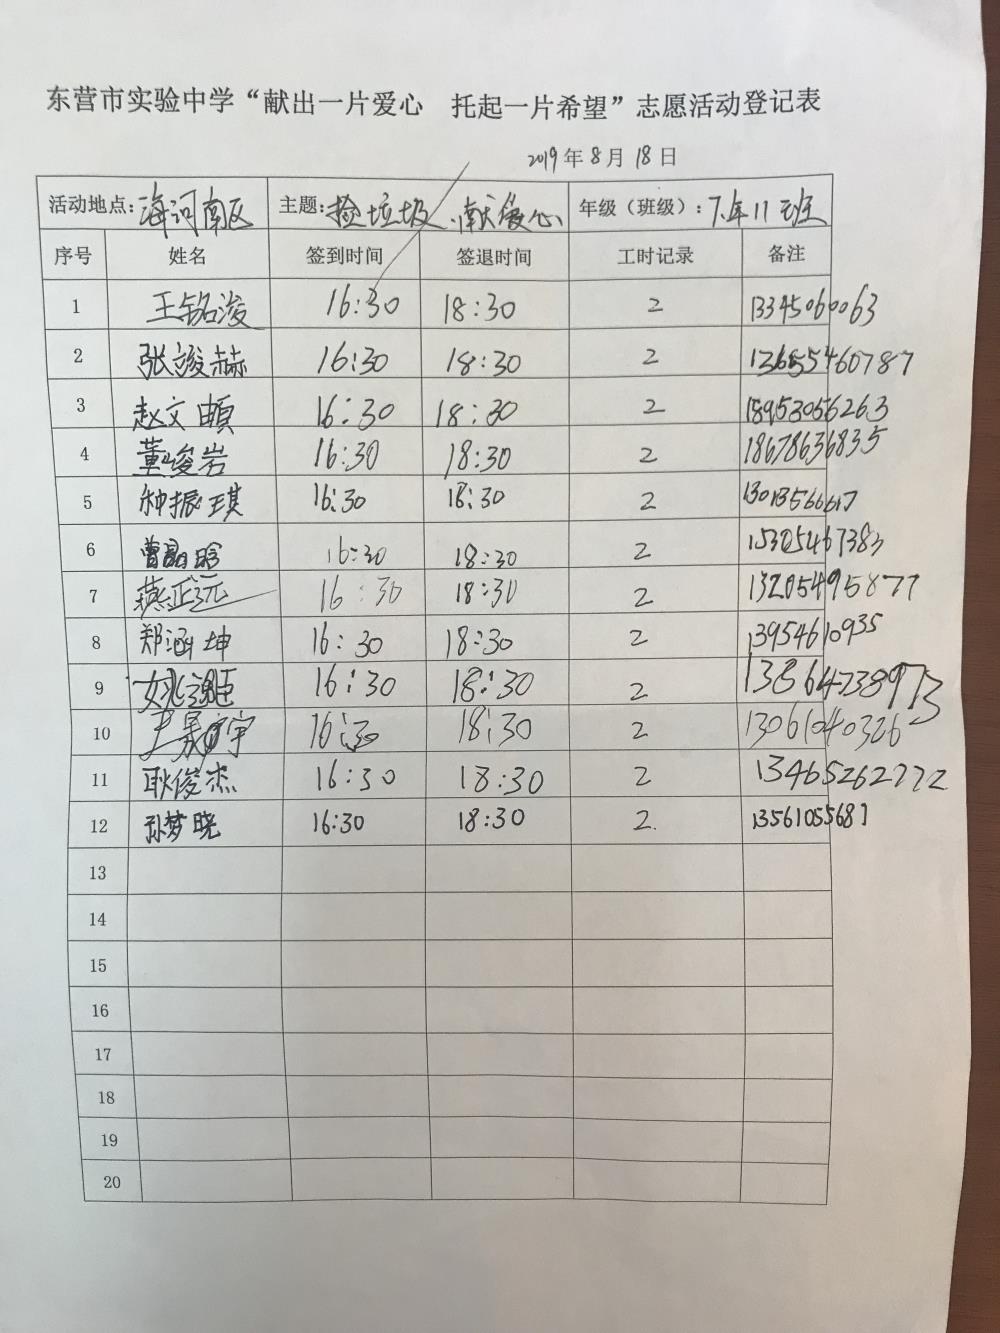 东营市实验中学“献出一片爱心 托起一片希望”志愿活动登记表
2019年8月18日
活动地点：海河南区 主题：捡垃圾 献爱心 年级（班级）：7年11班
序号 姓名 签到时间 签退时间 工时记录 备注
1 王铭浚 16:30 18:30 2 13345060063
2 张竣赫 16:30 18:30 2 13655460787
3 赵文 16:30 18:30 2 18953056263
4 董峻岩 16:30 18:30 2 18678636835
5 种振琪 16:30 18:30 2 13013566617
6 曹 晗 16:30 18:30 2 15305467383
7 燕正远 16:30 18:30 2 13205495877
8 郑涵坤 16:30 18:30 2 13954610935
9 姚 16:30 18:30 2 13864738973
10 宇 16:30 18:30 2 13061040326
11 耿俊杰 16:30 18:30 2 13465262772
12 孙梦晓 16:30 18:30 2. 13561055681
13
14
15
16
17
18
19
20